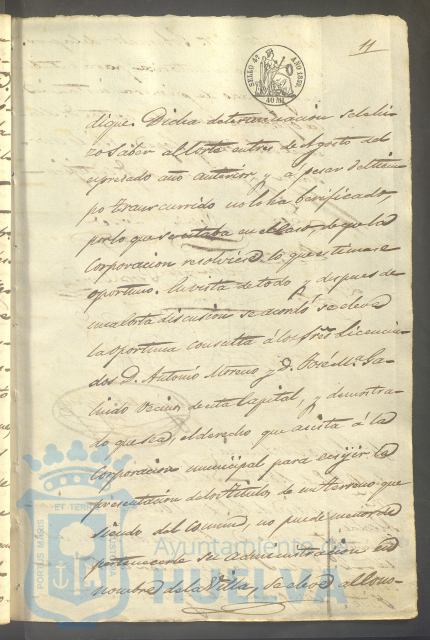 11
SELLO 4º AÑO 1859.
40 Ms.
dique. Dicha determinacion se le hi-
zo saber al Corte en tres de Agosto del
espresado año anterior, y a pesar del tiem-
po transcurrido no lo ha berificado,
por lo que se estaba en el caso de que la
Corporacion resolviera lo que estimase
oportuno. En vista de todo y despues de
una corta discusion se acordó se eleve
la oportuna consulta á los Sres. Licencia-
dos D. Antonio Moreno y D. José Mª. Ga-
 vecinos de esta Capital, y demostra-
do que sea, el derecho que asista á la
Corporacion municipal para ecsijir la
presentacion de los titulos de un terreno que
siendo del Comun, no puede menos de
pertenecerle su administracion en
nombre de la Villa, se eleve al
PORTUS MARIS ET TERRAE
Ayuntamiento de
HUELVA